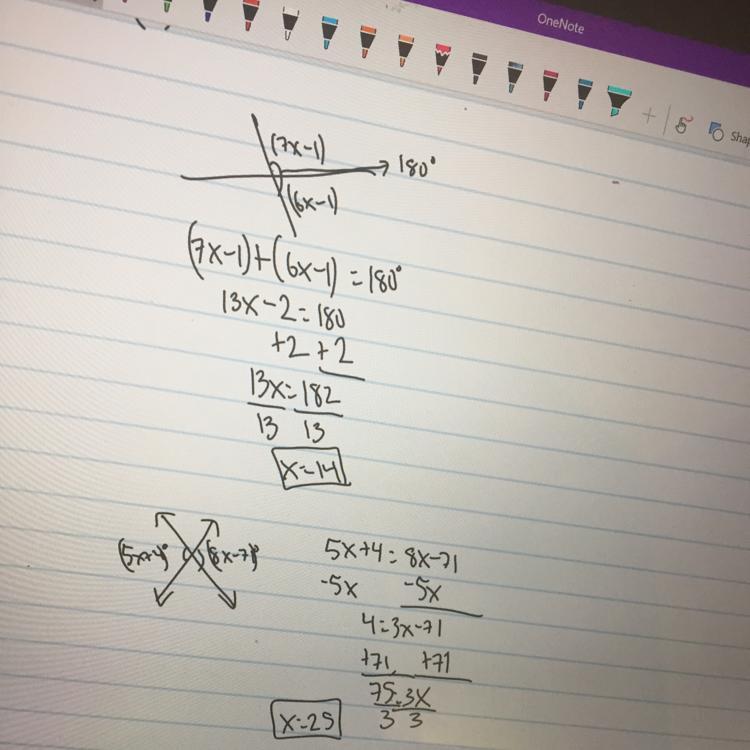 OneNote
Shap
(7x-1)
180°
(6x-1)
(7x-1)+(6x-1)=180°
13x-2=180
+2 +2
13x=182
13 13
x=14
(5x+4)° (8x-71)°
5x+4=8x-71
-5x -5x
4=3x-71
+71 +71
75=3x
3 3
x=25